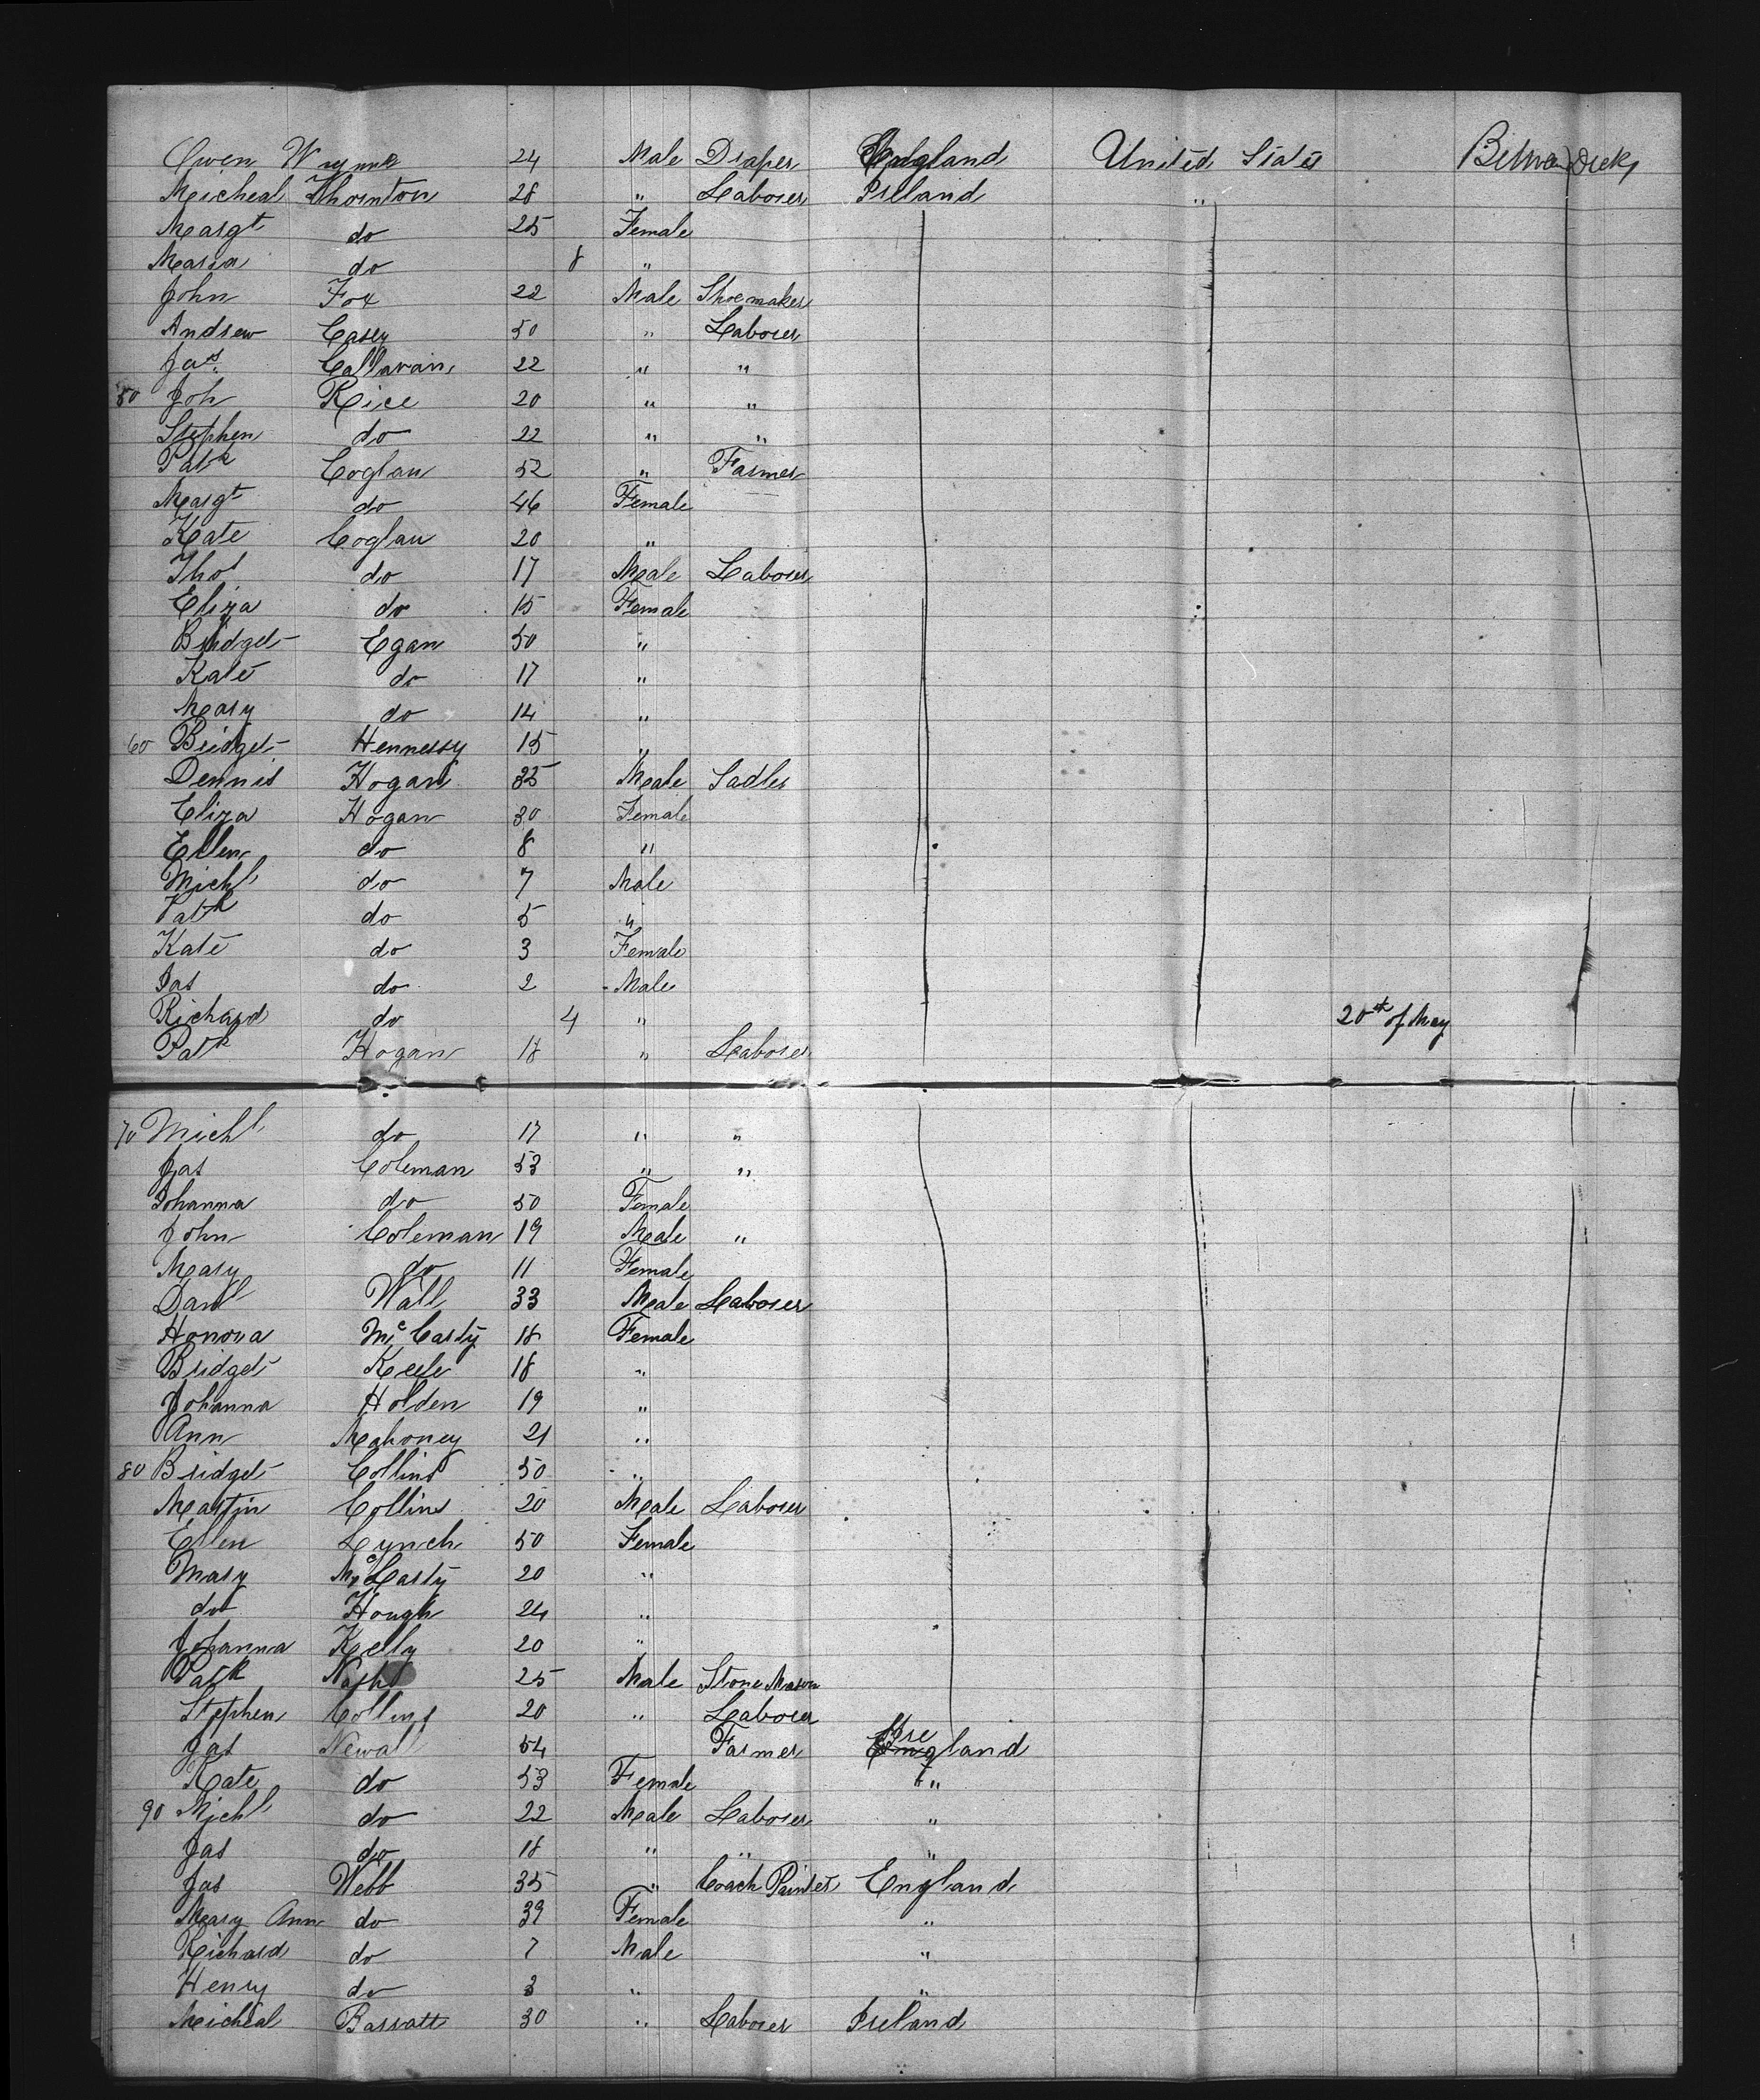 Owen Wynne 24 Male Draper England United States Between Decks
Micheal Thornton 28 " Laborer Ireland "
Margt do 25 Female
Maria do 8 "
John Fox 22 Male Shoemaker
Andrew Casey 50 " Laborer
Jas. Callavan 22 " "
50 Joh Rice 20 " "
Stephen do 22 " "
Patk Coglan 52 " Farmer
Margt do 46 Female
Kate Coglan 20 "
Thos do 17 Male Laborer
Eliza do 15 Female
Bridget Egan 50 "
Kate do 17 "
Mary do 14 "
60 Bridget Hennessy 15 "
Dennis Hogan 35 Male Sadler
Eliza Hogan 30 Female
Ellen do 8 "
Michl do 7 Male
Patk do 5 "
Kate do 3 Female
Jas do 2 Male
Richard do 4 " 20th of May
Patk Hogan 18 " Laborer
70 Michl do 17 " "
Jas Coleman 53 " "
Johanna do 50 Female
John Coleman 19 Male "
Mary do 11 Female
Danl Wall 33 Male Laborer
Honora McCarty 18 Female
Bridget 18 "
Johanna Holden 19 "
Ann Mahoney 21 "
80 Bridget Collins 50 "
Martin Collins 20 Male Laborer
Ellen Lynch 50 Female
Mary McCarty 20 "
do Hough 24 "
Johanna Kelly 20 "
Patk Nash 25 Male Stone Mason
Stephen Collins 20 " Laborer
Jas Newall 54 Farmer Ireland
Kate do 53 Female "
90 Michl do 22 Male Laborer "
Jas do 18 " " "
Jas Webb 35 " Coach Painter England
Mary Ann do 39 Female "
Richard do 7 Male "
Henry do 3 " "
Micheal Barratt 30 " Laborer Ireland